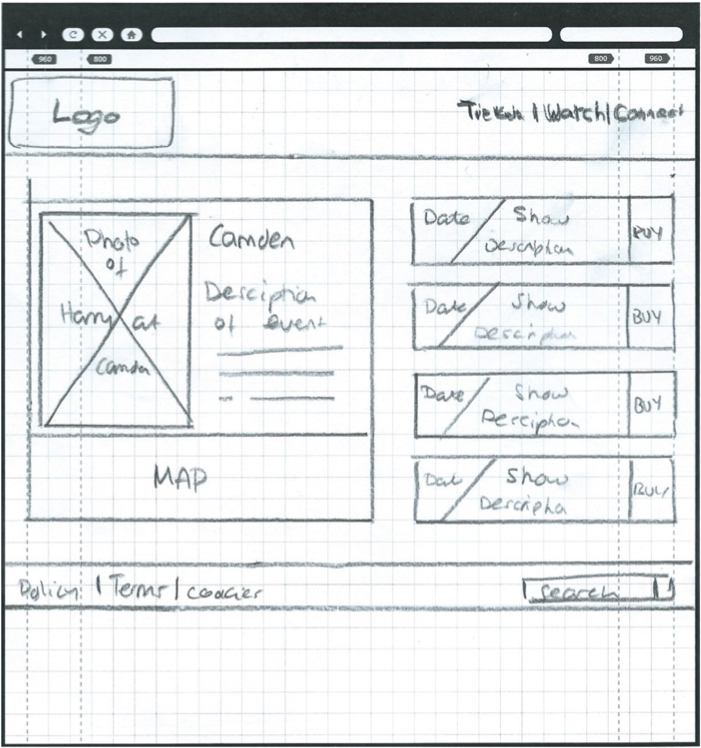 960 800 800 960
Logo
Tickets | Watch | Connect
Photo
of
Harry at
Camden
Camden
Desciption
of event
MAP
Date / Show
Description
BUY
Date / Show
Description
BUY
Date / Show
Desciption
BUY
Date / Show
Descriptio
BUY
Policy | Terms | cookies
Search